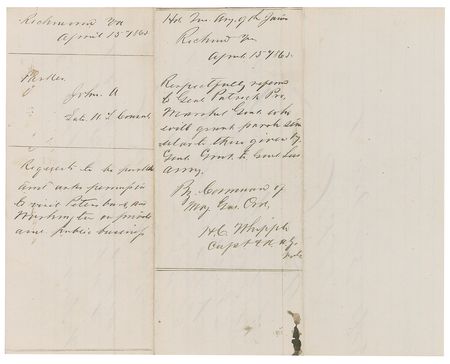 Richmond Va
April 15th /65.
Parker
John A
Late U. S. Consul
Requests to be paroled
and asks permission
to visit Petersburg and
Washington on private
and public business
Hd Qrs Army of the James
Richmond Va
April 15th /65.
Respectfully referred
to Genl Patrick Pro.
Marshal Genl. who
will grant parole sim
ilar to those given by
Genl. Grant to Genl Lees
army.
By Command of
Maj Gen. Ord,
H.C. Whipple
Capt & A. A. G.